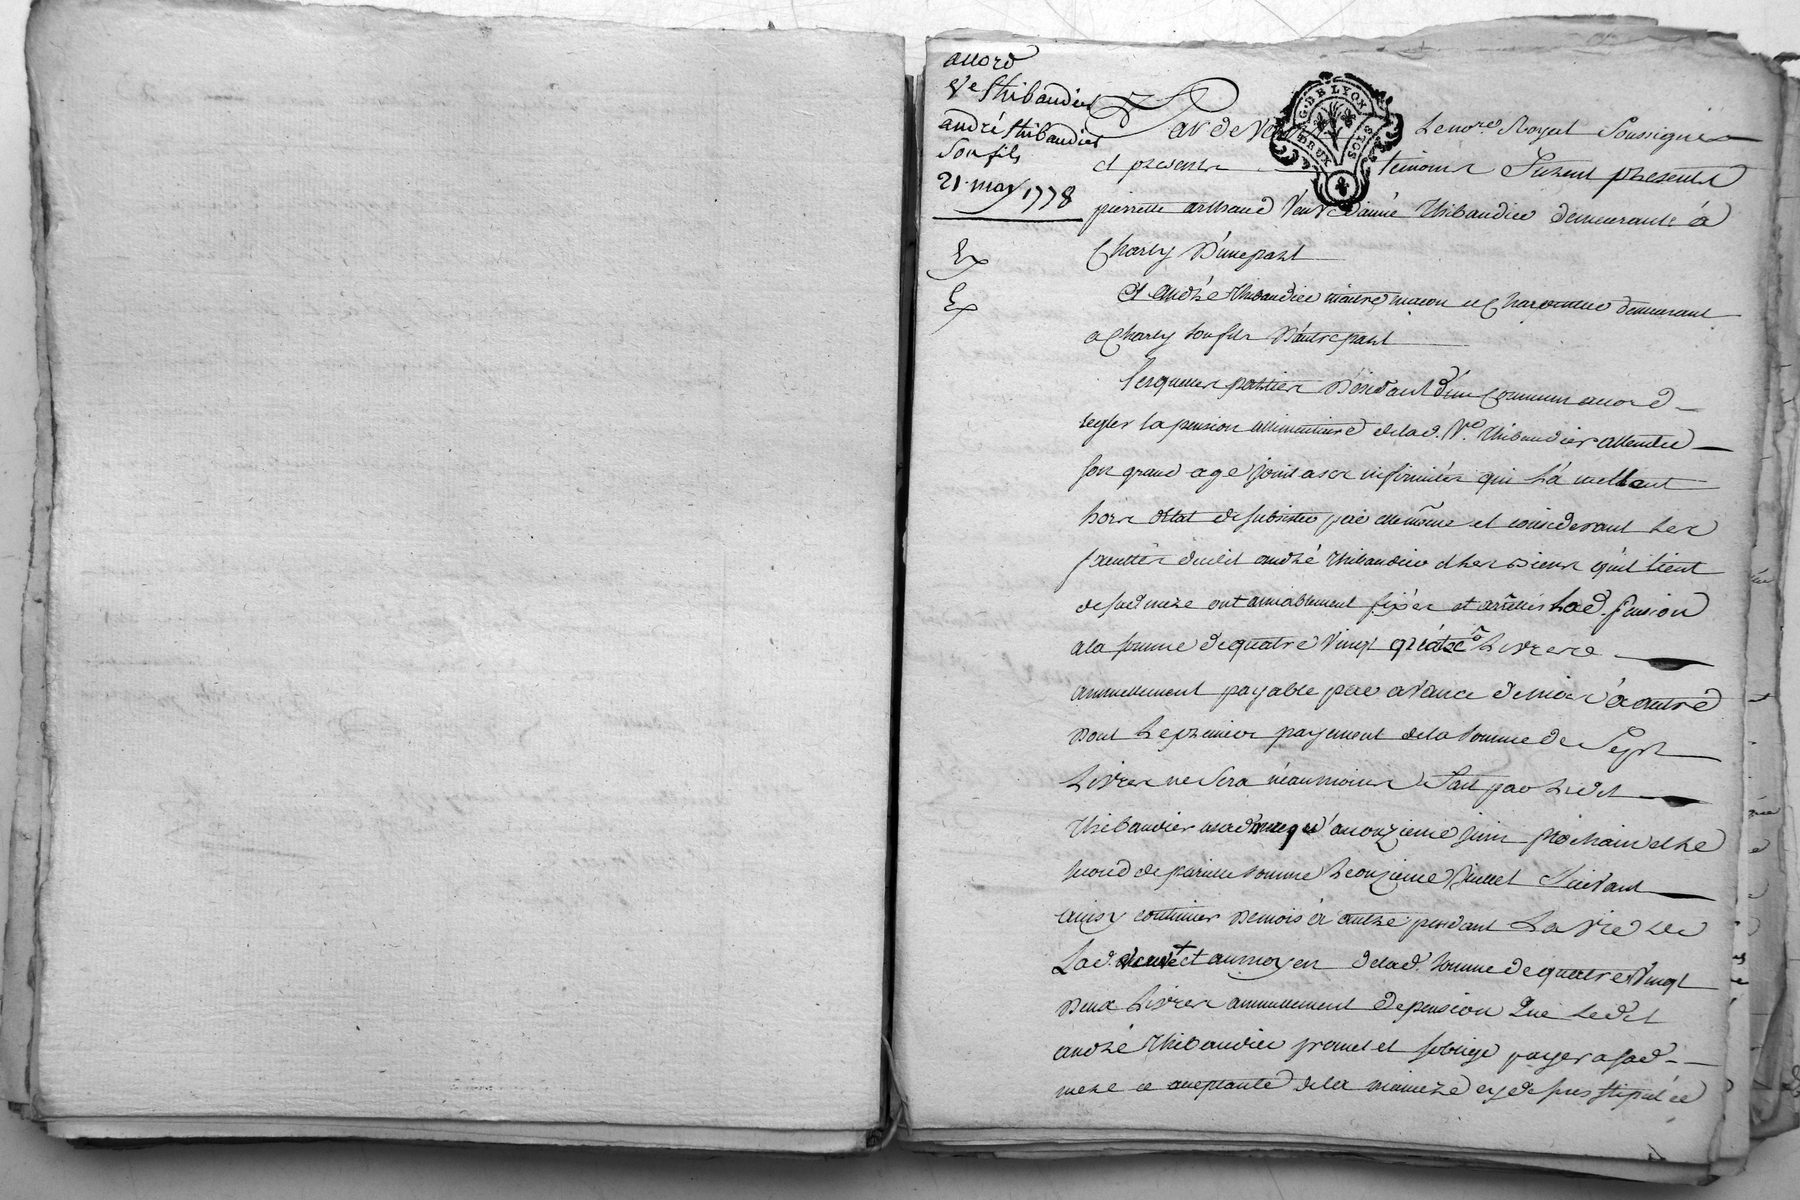 accord
Ve thibaudier
andré thibaudier
son fils
21 may 1778
Ex
Ex
G. DE LYON
DEUX SOLS
Par devant Le nore Royal soussigné
et presents temoins furent presents
pierrette arthaud veuve d'aimé thibaudier demeurante à
Charly d'une part
Et andré thibaudier maitre macon et Charpentier demeurant
a Charly son fils d'autre part
lesquelles parties d'un commun accord
regler la pension allimentaire de lad. Ve. thibaudier attendu
son grand age joint a ses infirmités qui la mettent
hors detat de subsister par elle même et considerant les
facultés dudit andré thibaudier et les biens qu'il tient
de sad mere ont amiablement fixés et arretés lad. pension
a la somme de quatre vingt quatre Livres
annuellement payable par avance de mois à autre
dont le premier payement de la somme de sept
Livres ne sera neanmoins fait par ledit
thibaudier a sad mere qu'au onzieme juin prochain et le
second de pareille somme le onzieme juillet suivant
ainsy continuer de mois à autre pendant La vie de
Lad. veuve et au moyen de lad. somme de quatre vingt
deux Livres annuellement de pension que ledit
andré thibaudier promet et s'oblige payer a sad
mere ce acceptante de la maniere cy de sus stipulée